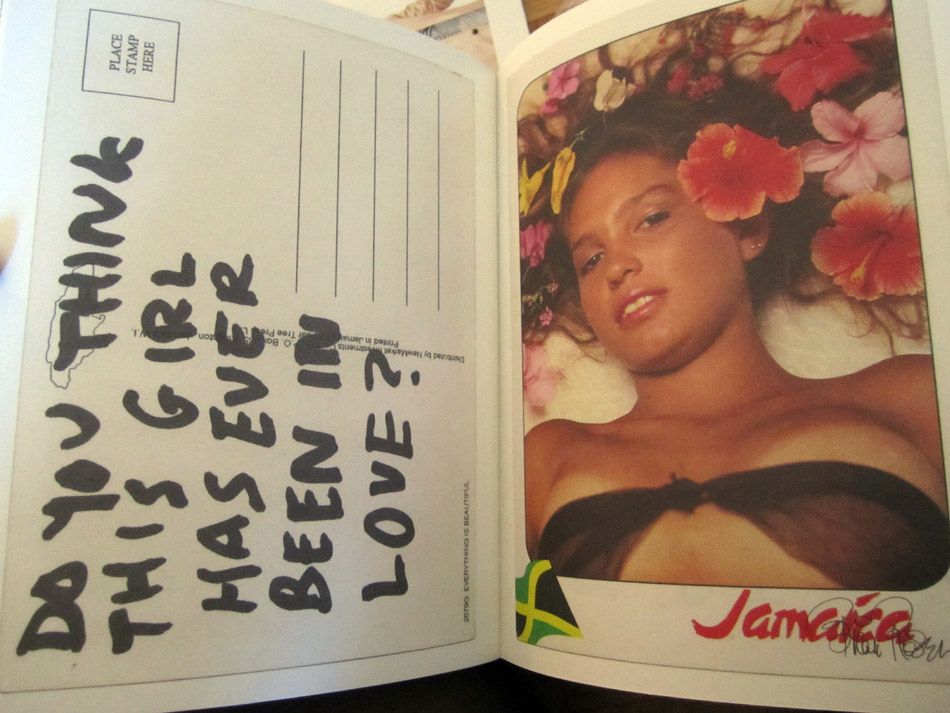 PLACE
STAMP
HERE
DO YOU THINK
THIS GIRL
HAS EVER
BEEN IN
LOVE?
Distributed by NewMarket Investments
Printed in Jamaica
2079G EVERYTHING IS BEAUTIFUL
Jamaica